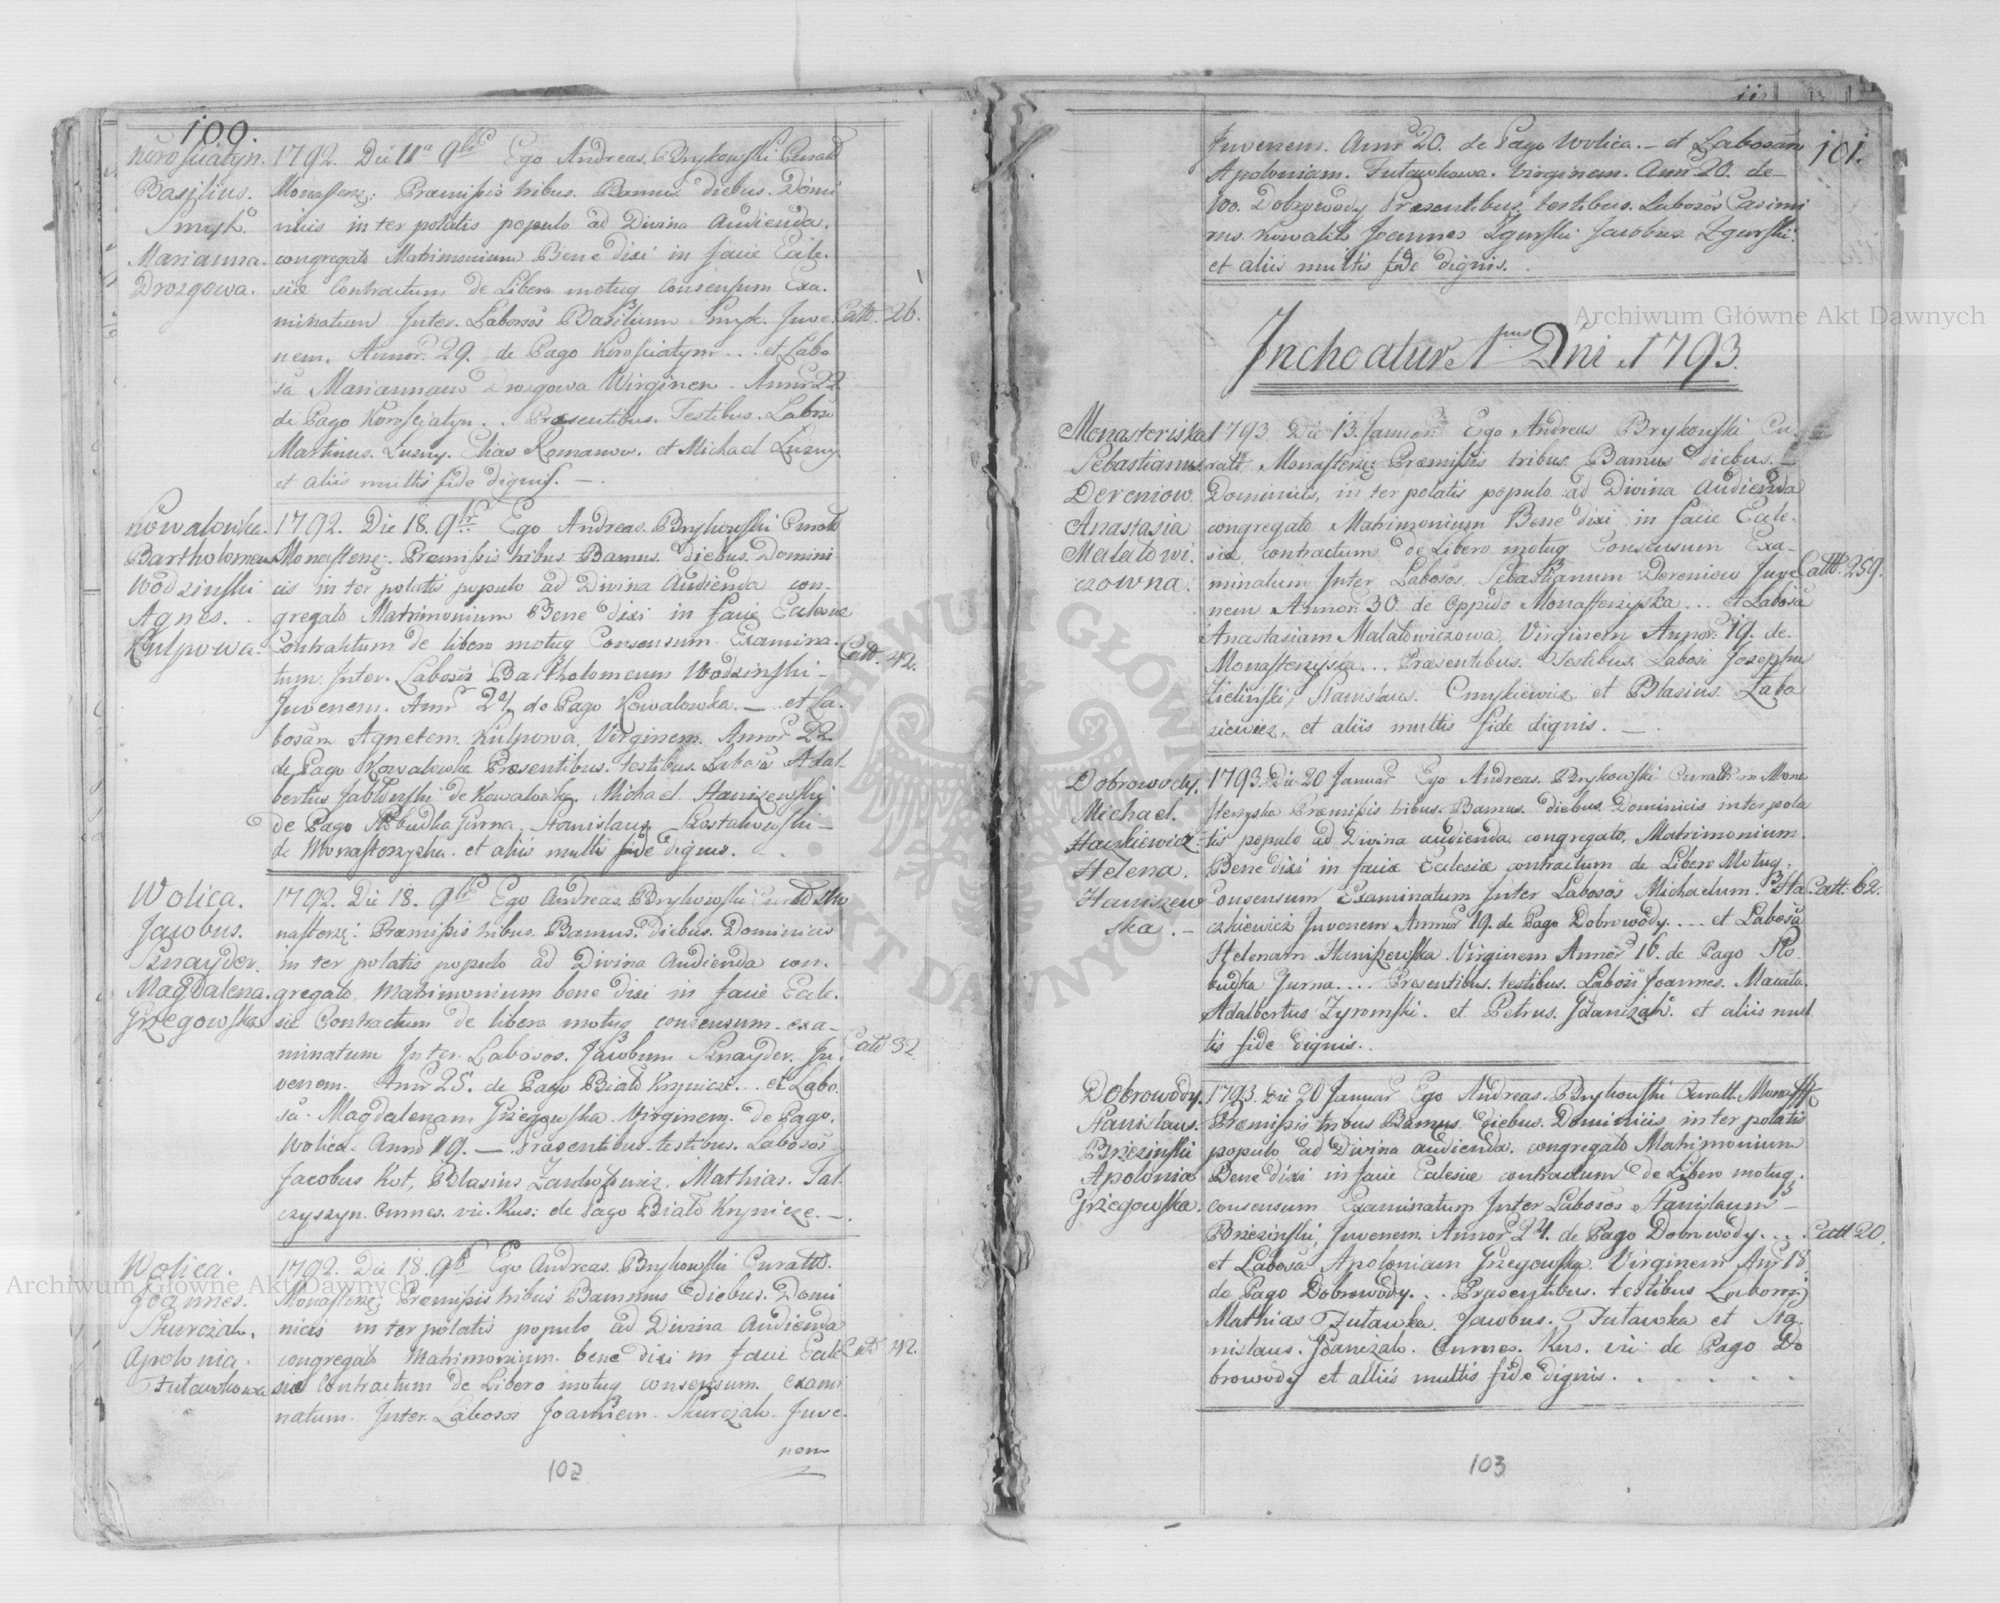 100.
Korosciatyn.
Basilius.
Smyk.
Marianna.
Drozgowa.
1792. Die 11a 9bris Ego Andreas Brykowski Curatt
Monasterz: Præmissis tribus Bannis diebus Domi
nicis interpolatis populo ad Divina audienda.
congregato Matrimonium Bene dixi in facie Eccle.
siæ Contractum de Libero motuq consensum Exa.
minatum Inter. Labosos Basilium Smyk. Juve.
nem. Annor. 29. de Pago Korosciatyn... et Labo
sa Mariannam Drozgowa Virginen. Annor 22
de Pago Korosciatyn.. Præsentibus. Testibus. Labosi
Martinus. Luzny. Elias Romanow. et Michael Luzny.
et aliis multis fide dignis. —.
Catt. 26.
Kowalowka.
Bartholomeus
Wodzinski
Agnes.
Kulpowa.
1792. Die 18. 9br. Ego Andreas. Brykowski Curatt
Monasterz: Premissis tribus Bannis. diebus. Domini
cis interpolatis populo ad Divina audienda con.
gregato Matrimonium Bene dixi in facie Eclesiæ
Contractum de libero motuq Consensum Examina.
tum. Inter. Labosos Bartholomeum Wodzinski –
Juvenem. Annr 24 de Pago Kowalowka. — et La.
bosam Agnetem. Kulpowa, Virginem. Annor 22
de Pago Kowalowka Presentibus. testibus. Labosi Adal.
bertus Jablonski de Kowalowka. Michael Haniszewski
de Pago Słobudka Gurna. Stanislaus
de Monasterzyska. et aliis multis fide dignis.
Catt. 42.
Wolica.
Jacobus.
Sznayder.
Magdalena.
Grzegowska
1792. Die 18. 9br Ego Andreas. Brykowski Curatt Mo
nasterz: Premissis tribus. Bannis. diebus. Dominicis
interpolatis populo ad Divina audienda con.
gregato, Matrimonium bene dixi in facie Eccle.
siæ Contractum de libero motuq consensum exa-
minatum Inter Labosos. Jacobum Sznayder. Ju.
venem. Annr 25. de Pago Białokrynicze... et Labo.
sa. Magdalenam Grzegowska. Virginem. de Pago.
Wolica. Annor 19. — Præsentibus testibus. Labosos
Jacobus Kot, Blasius Mathias. Tal.
czyszyn. Omnes. vii. Rus: de Pago Białokrynicze. —.
Catt 32.
Wolica.
Joannes.
Skurczak.
Apolonia.
Futawkowa
1792. Die 18. 9br Ego Andreas. Brykowski Curatt.
Monasterz: Premissis tribus Bannis diebus. Domi
nicis interpolatis populo ad Divina audienda
congregato Matrimonium. bene dixi in facie Eccle
siæ Contractum de Libero motuq consensum. exami
natum. Inter. Labosos Joannem. Skurczak. Juve.
nem
Catt 42.
102
101.
Juvenem. Annr 20. de Pago Wolica. – et Labosam
Apoloniam. Futawkowa. Virginem. Annr 20. de
Dobrowody Presentibus testibus. Labosos Casimi
rus Kowalik Joannes Zgurski Jacobus Zgurski.
et aliis multis fide dignis.
Inchoatur Dni 1793.
Monasteriska
Sebastianus
Dereniow.
Anastasia
Malatowi.
czowna.
1793. Die 13. Januari Ego Andreas Brykowski Cu.
ratt Monasterz: Premissis tribus Bannis diebus. –
Dominicis, interpolatis populo ad Divina audienda
congregato Matrimonium Bene dixi in facie Eccle.
siæ contractum de Libero motuq Consensum Exa–
minatum Inter Labosos. Sebastianum Dereniow Juve
nem Annor. 30. de Oppido Monasterzyska... et Labosa
Anastasiam Malatowiczowa, Virginem Annor. 19. de.
Monasterzyska... Præsentibus. Testibus. Labosi Josephus
Zielinski, Stanislaus. Cmykiewicz et Blasius. Laba
siewicz, et aliis multis fide dignis. —.
Catt. 259.
Dobrowody.
Michael.
Haszkiewicz
Helena.
Haniszew
ska. –
1793. Die 20 Januar Ego Andreas. Brykowski Curatt. Mona
sterzyska Premissis tribus. Bannis. diebus Dominicis interpola
tis populo ad Divina audienda congregato, Matrimonium.
Bene dixi in facie Eclesiæ contractum de Libero Motuq.
Consensum Examinatum Inter Labosos Michaelum. Ha
szkiewicz Juvenem Annor 19. de Pago Dobrowody.... et Labosa
Helenam Haniszewska Virginem Annor 16. de Pago Sło.
budka Gurna.... Presentibus. testibus. Labosi Joannes.
Adalbertus Zyromski. et Petrus. Gdaniczak. et aliis mul
tis fide dignis..
Catt. 62.
Dobrowody.
Stanislaus.
Brzezinski
Apolonia
Grzegowska.
1793. Die 20 Januar Ego Andreas. Brykowski Curatt. Monast
Premissis tribus Bannis diebus. Dominicis interpolatis
populo ad Divina audienda. congregato Matrimonium
Bene dixi in facie Eclesiæ contractum de Libero motuq.
consensum Examinatum Inter Labosos Stanislaum –
Brzezinski, Juvenem. Annor 24. de Pago Dobrowody....
et Labosa Apoloniam Grzegowska. Virginem Annr 18.
de Pago Dobrowody... Præsentibus. testibus
Mathias Futawka. Jacobus. Futawka et Sta.
nislaus. Gdaniczak. Omnes. Rus. vii de Pago Do
browody et alliis multis fide dignis. . . . . .
Catt 20.
103
Archiwum Główne Akt Dawnych
Archiwum Główne Akt Dawnych
ARCHIWUM GŁÓWNE AKT DAWNYCH